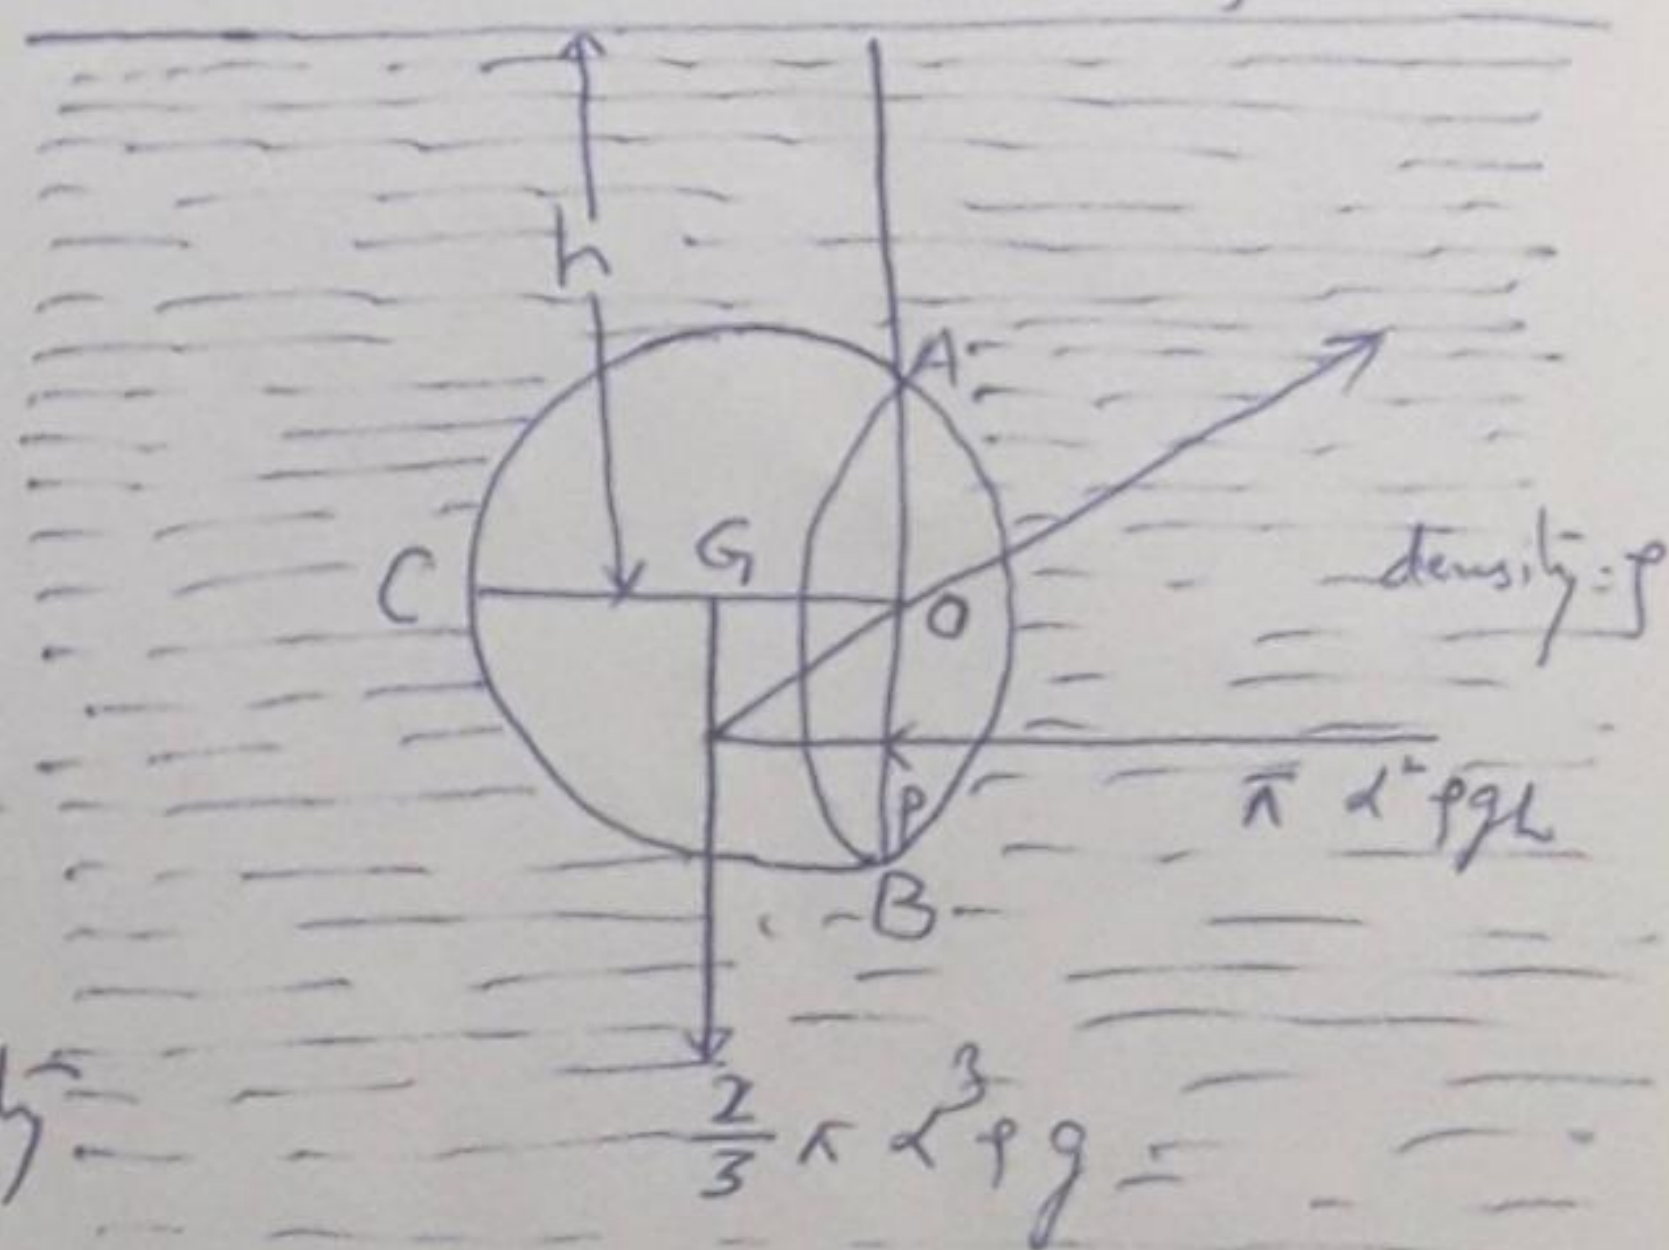 h
A
C
G
O
density = ρ
P
π α² ρgh
B
2/3 π α³ ρ g =